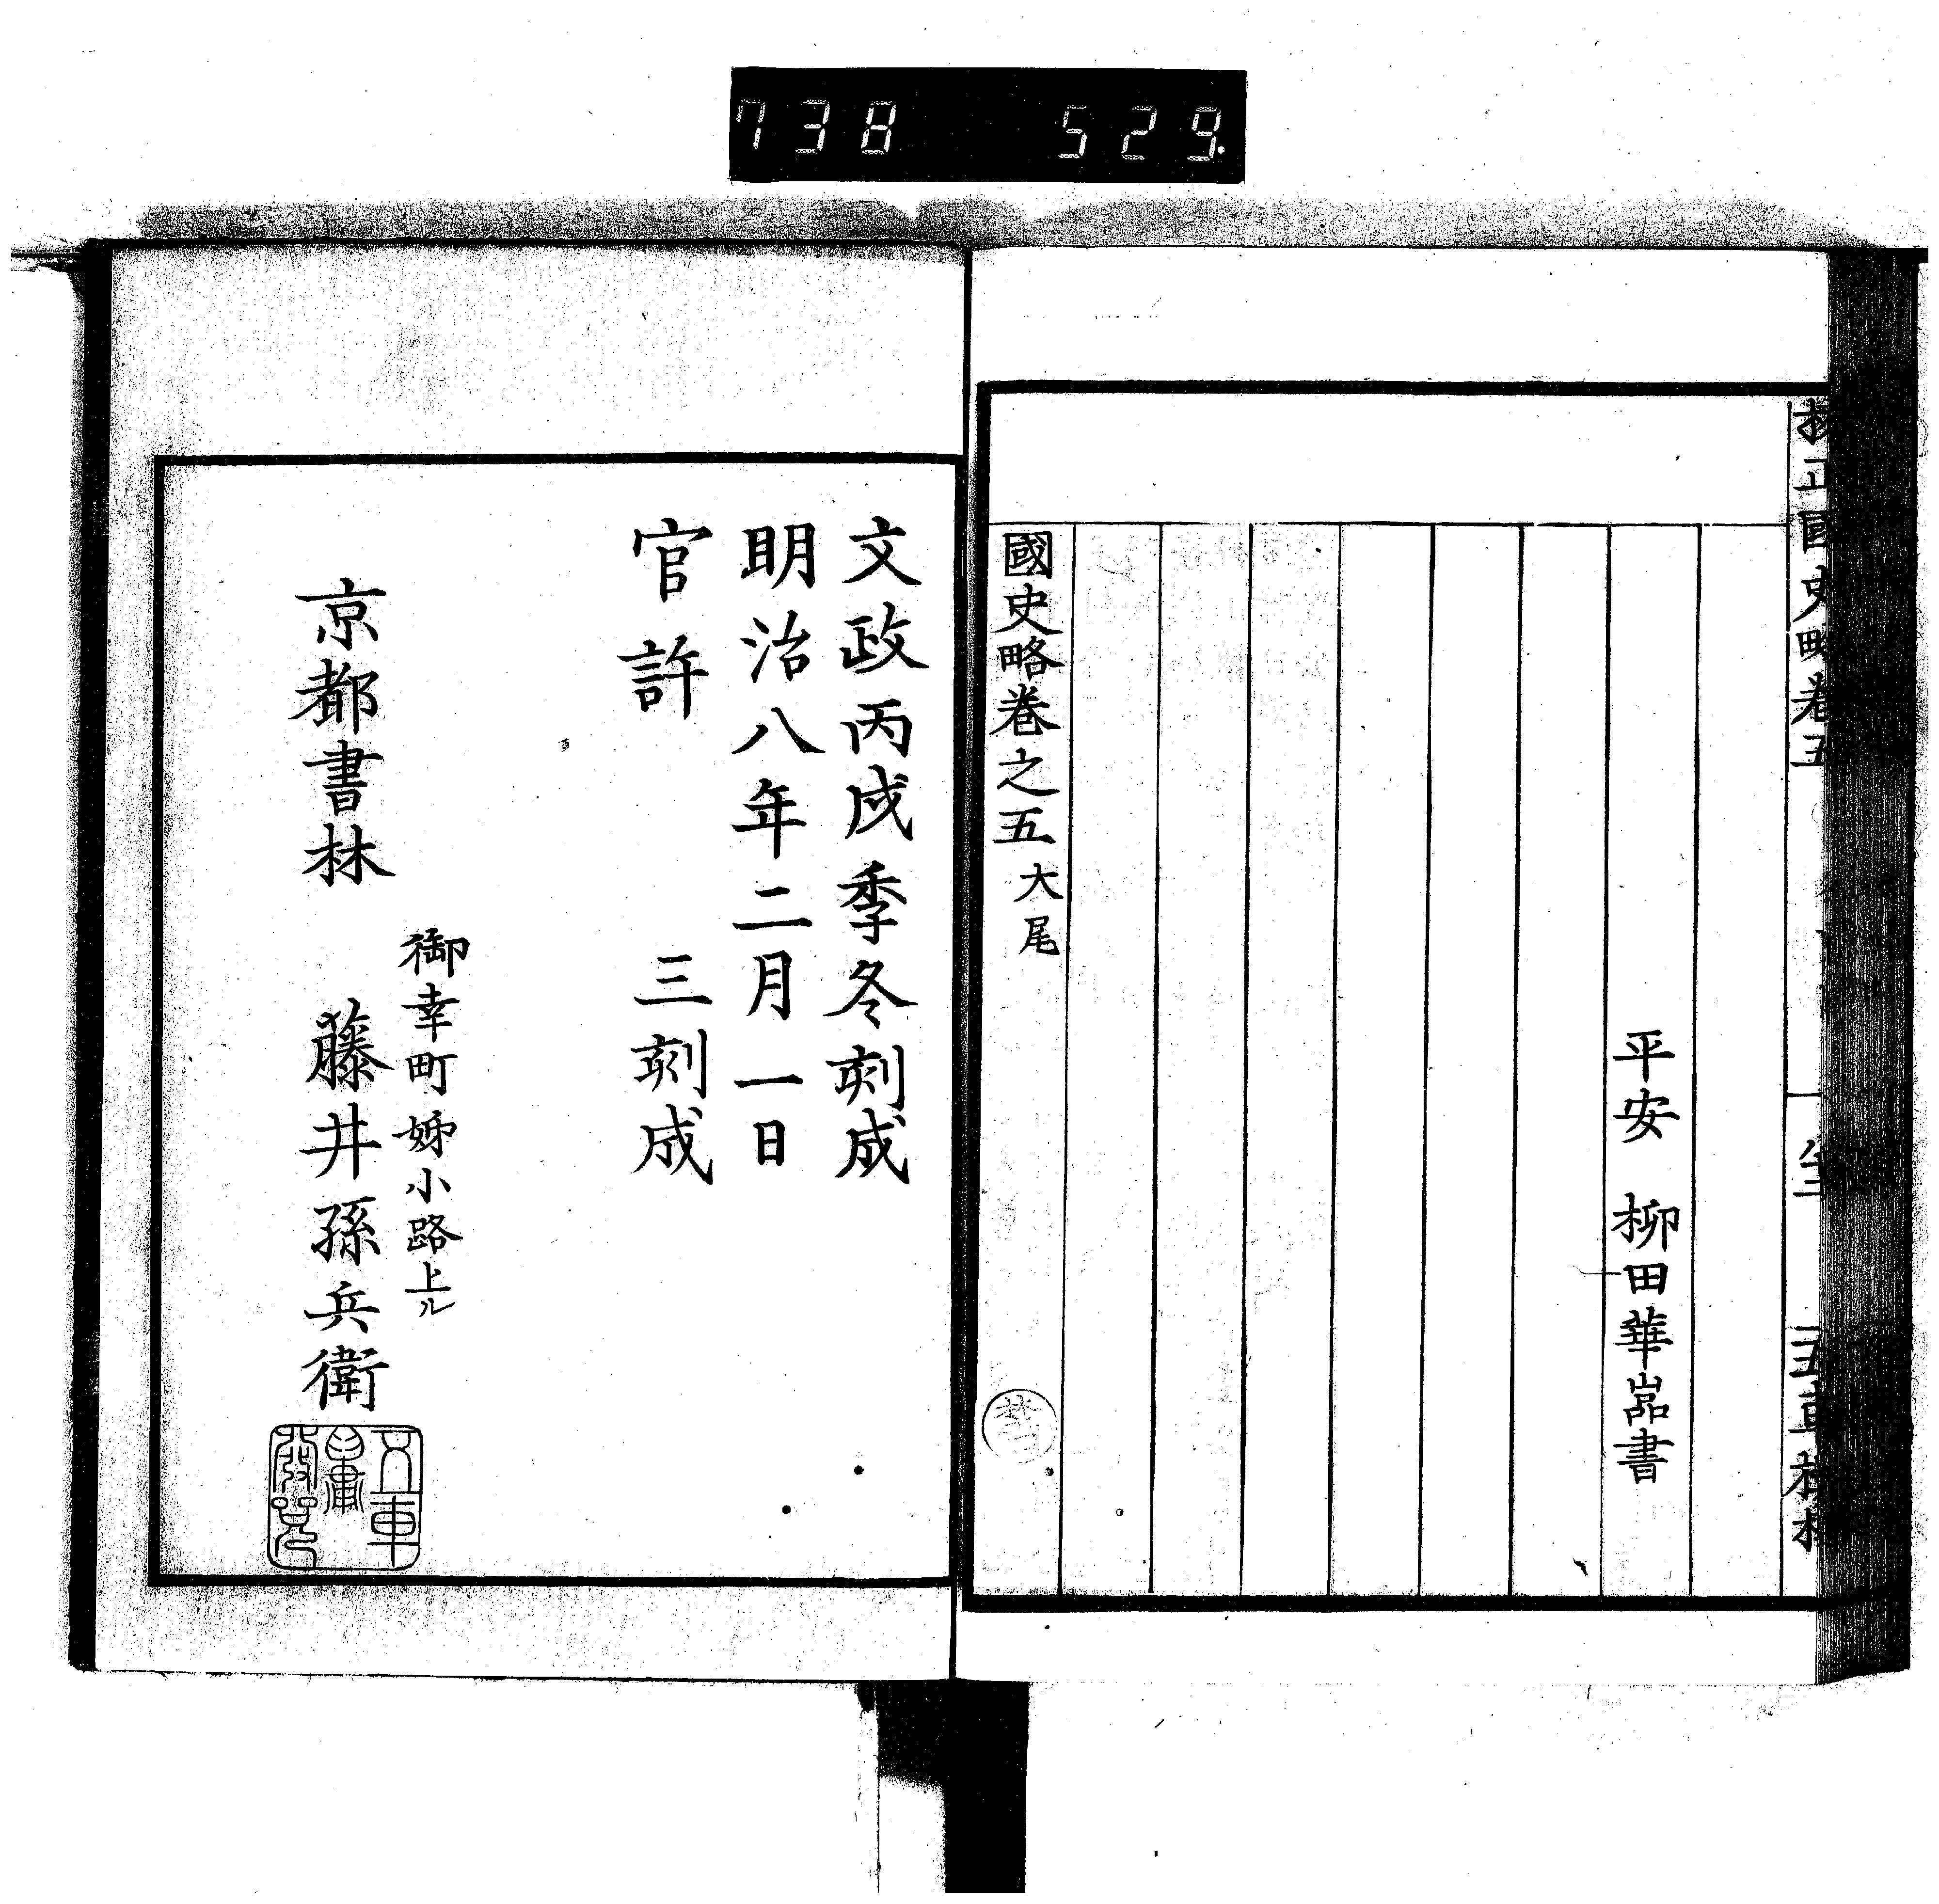 738 529
正國史略卷五
平安 柳田華嵓書
國史略卷之五 大尾
文政丙戌季冬刻成
明治八年二月一日
官許 三刻成
御幸町姊小路上ル
京都書林 藤井孫兵衛